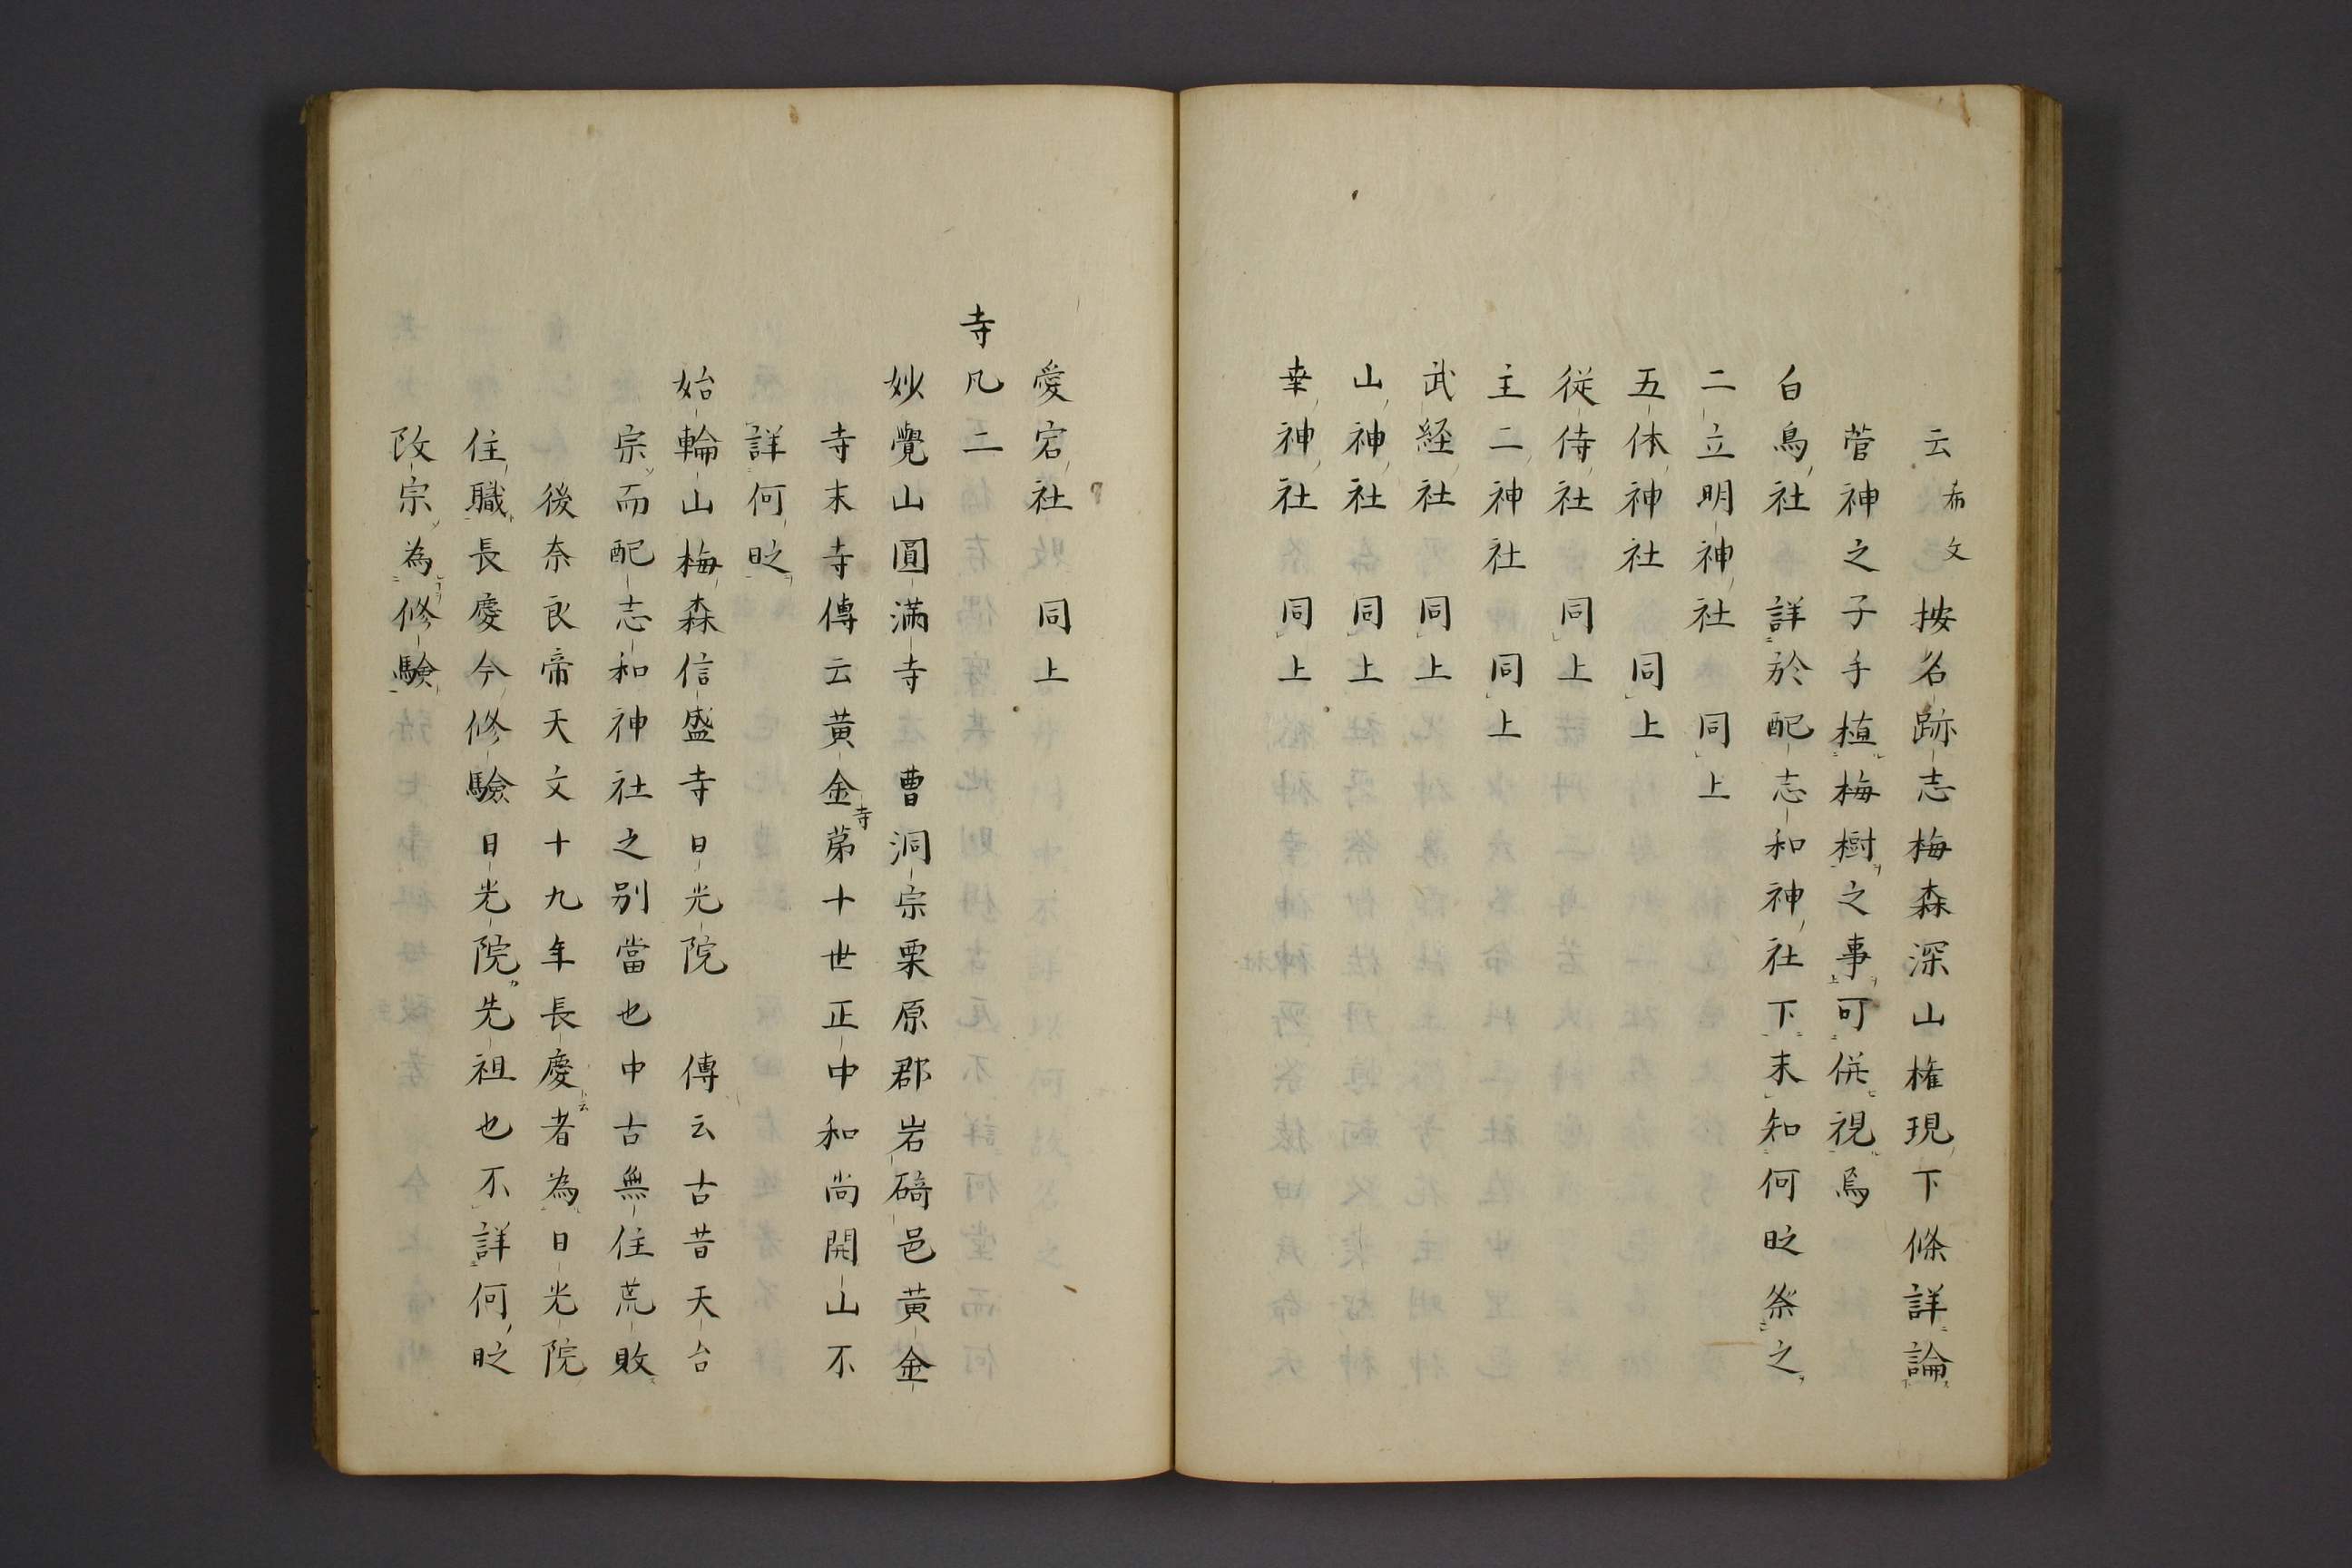 云 希文 按名跡志梅森深山権現下條詳論
菅神之子手植梅樹之事可併視焉
白鳥社 詳於配志和神社下未知何时祭之
二立明神社 同上
五体神社 同上
従侍社 同上
主二神社 同上
武経社 同上
山神社 同上
幸神社 同上
愛宕社 同上
寺凡二
妙覺山圓満寺 曹洞宗栗原郡岩﨑邑黄金
寺末寺傳云黄金寺第十世正中和尚開山不
詳何时
始輪山梅森信盛寺日光院 傳云古昔天台
宗而配志和神社之別當也中古無住荒敗
後奈良帝天文十九年長慶者為日光院
住職長慶今修驗日光院先祖也不詳何时
改宗為修驗